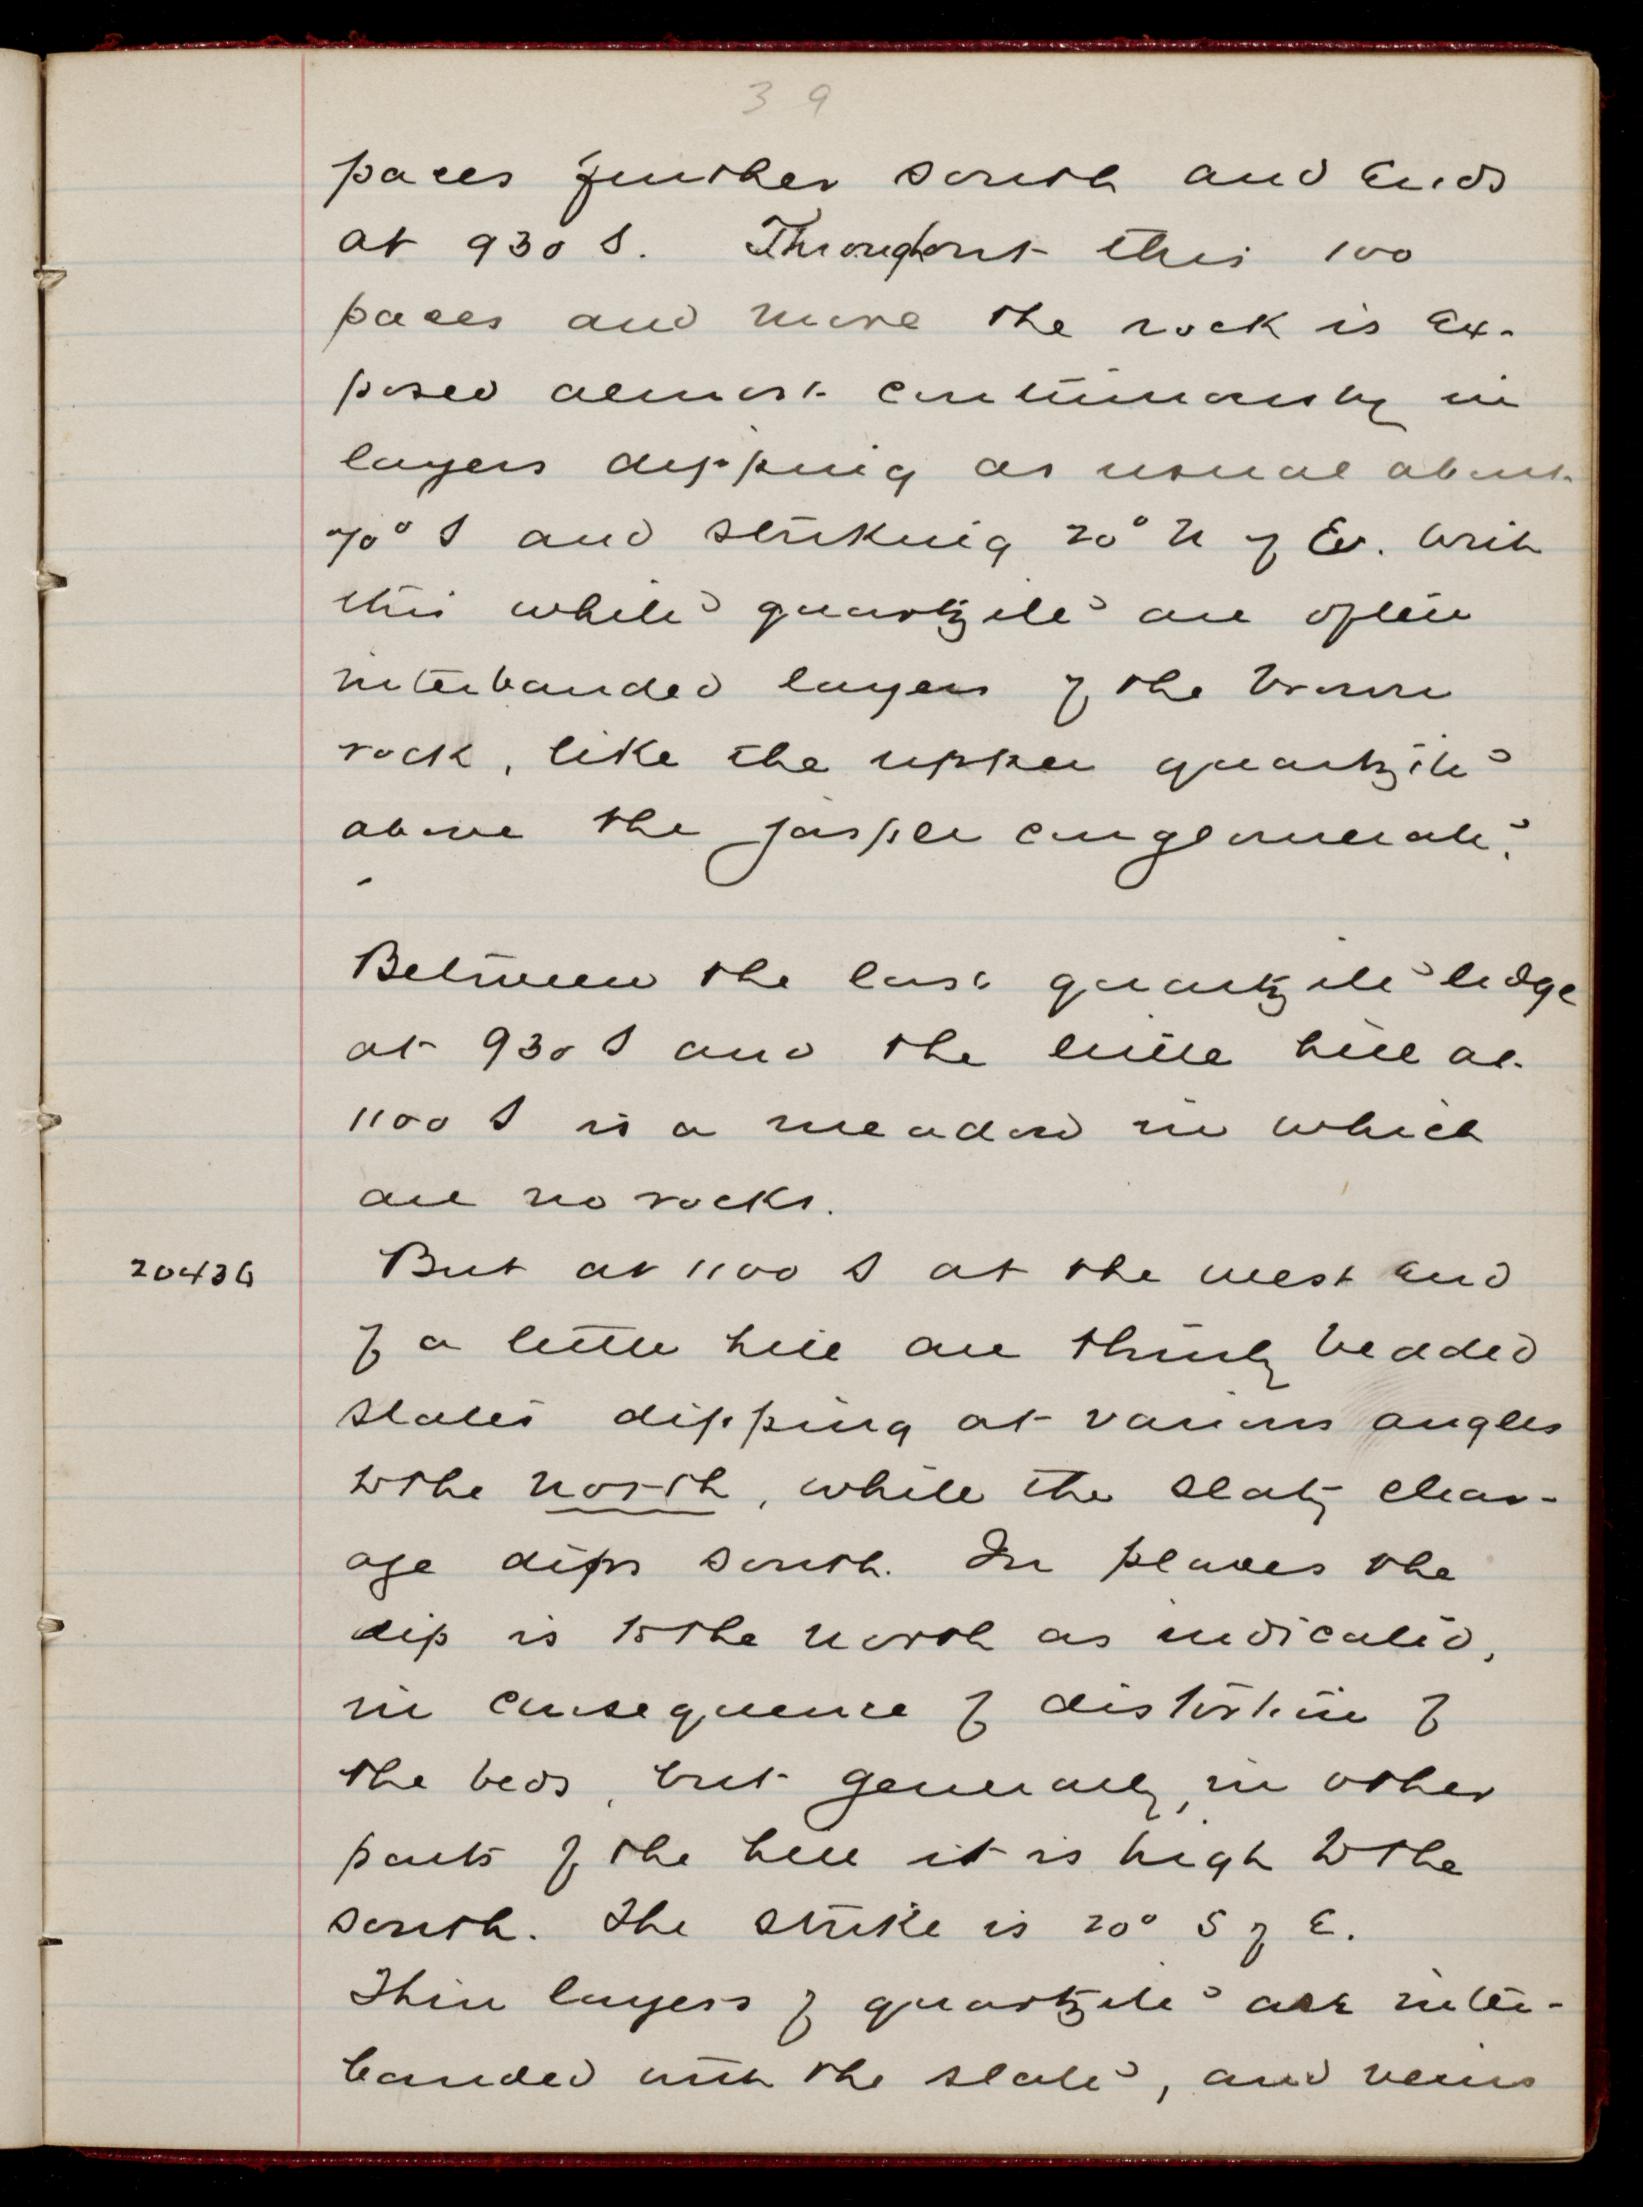 39
paces further south and ends
at 930 S. Throughout this 100
paces and more the rock is ex-
posed almost continuously in
layers dipping as usual about
70° S and striking 20° N of E. With
this white quartzite are often
interbanded layers of the brown
rock, like the upper quartzite
above the jasper conglomerate.
Between the last quartzite ledge
at 930 S and the little hill at
1100 S is a meadow in which
are no rocks.
20436
But at 1100 S at the west end
of a little hill are thinly bedded
slates dipping at various angles
to the north, while the slaty cleav-
age dips south. In places the
dip is to the north as indicated,
in consequence of distortion of
the beds, but generally, in other
parts of the hill it is high to the
south. The strike is 20° S of E.
Thin layers of quartzite are inter-
banded with the slate, and veins